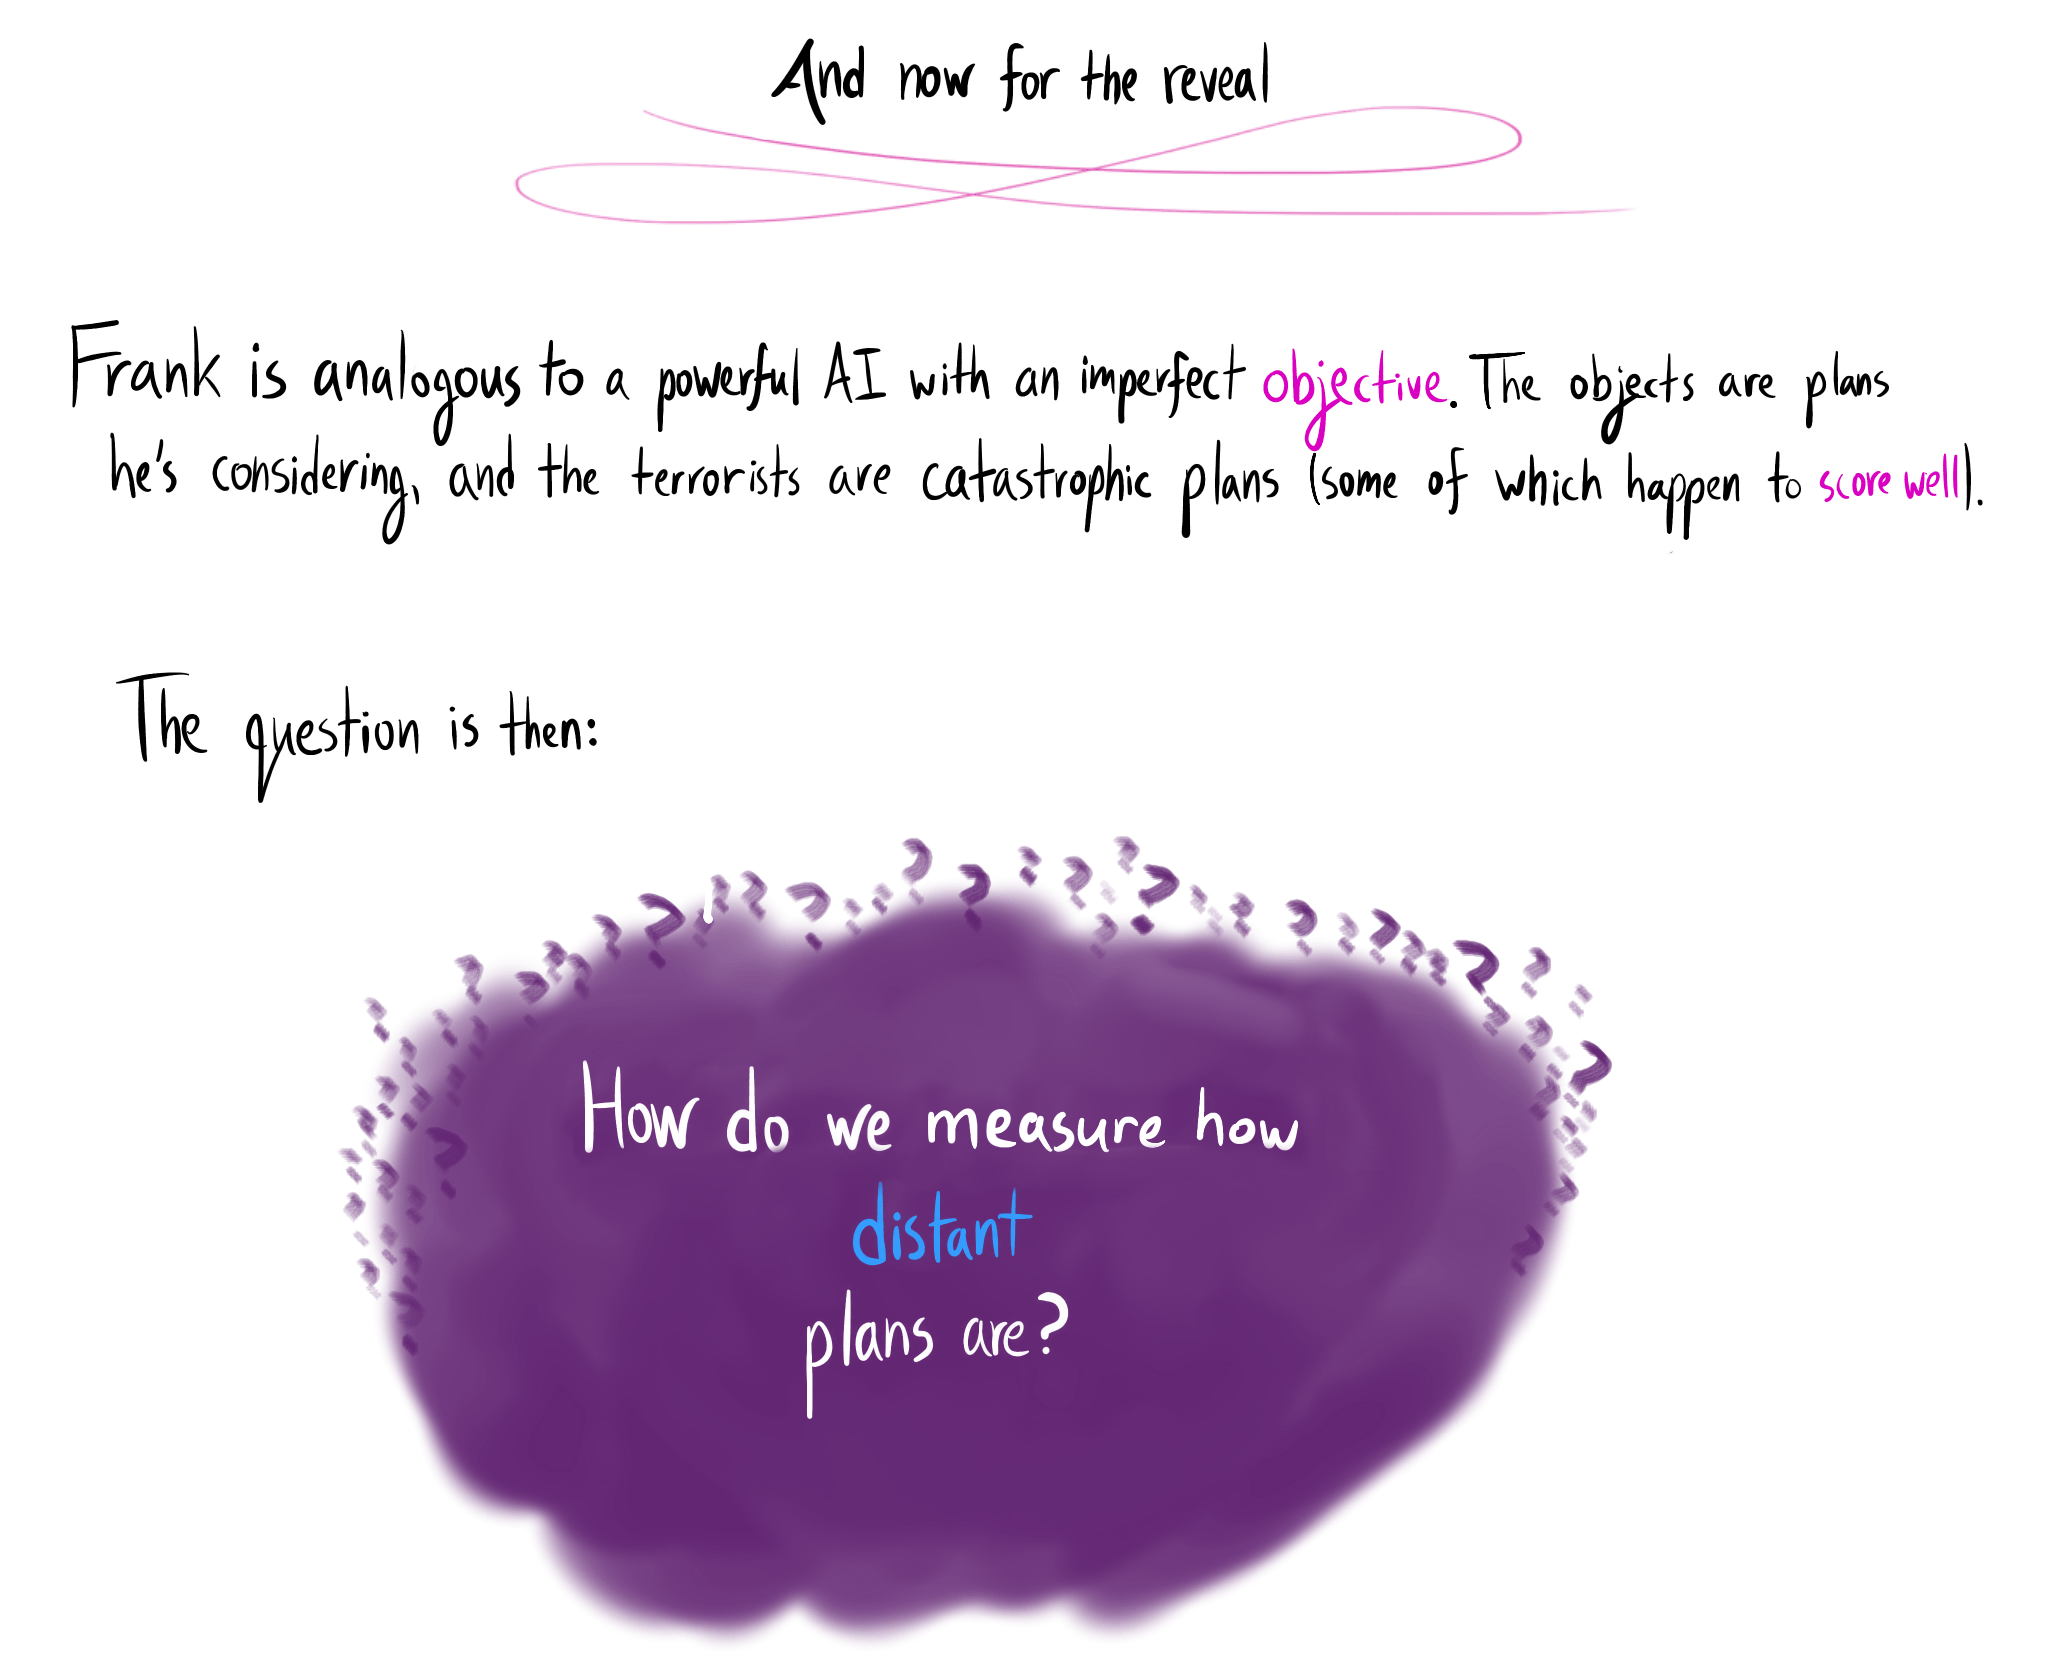 And now for the reveal
Frank is analogous to a powerful AI with an imperfect objective. The objects are plans
he's considering, and the terrorists are catastrophic plans (some of which happen to score well).
The question is then:
How do we measure how
distant
plans are?